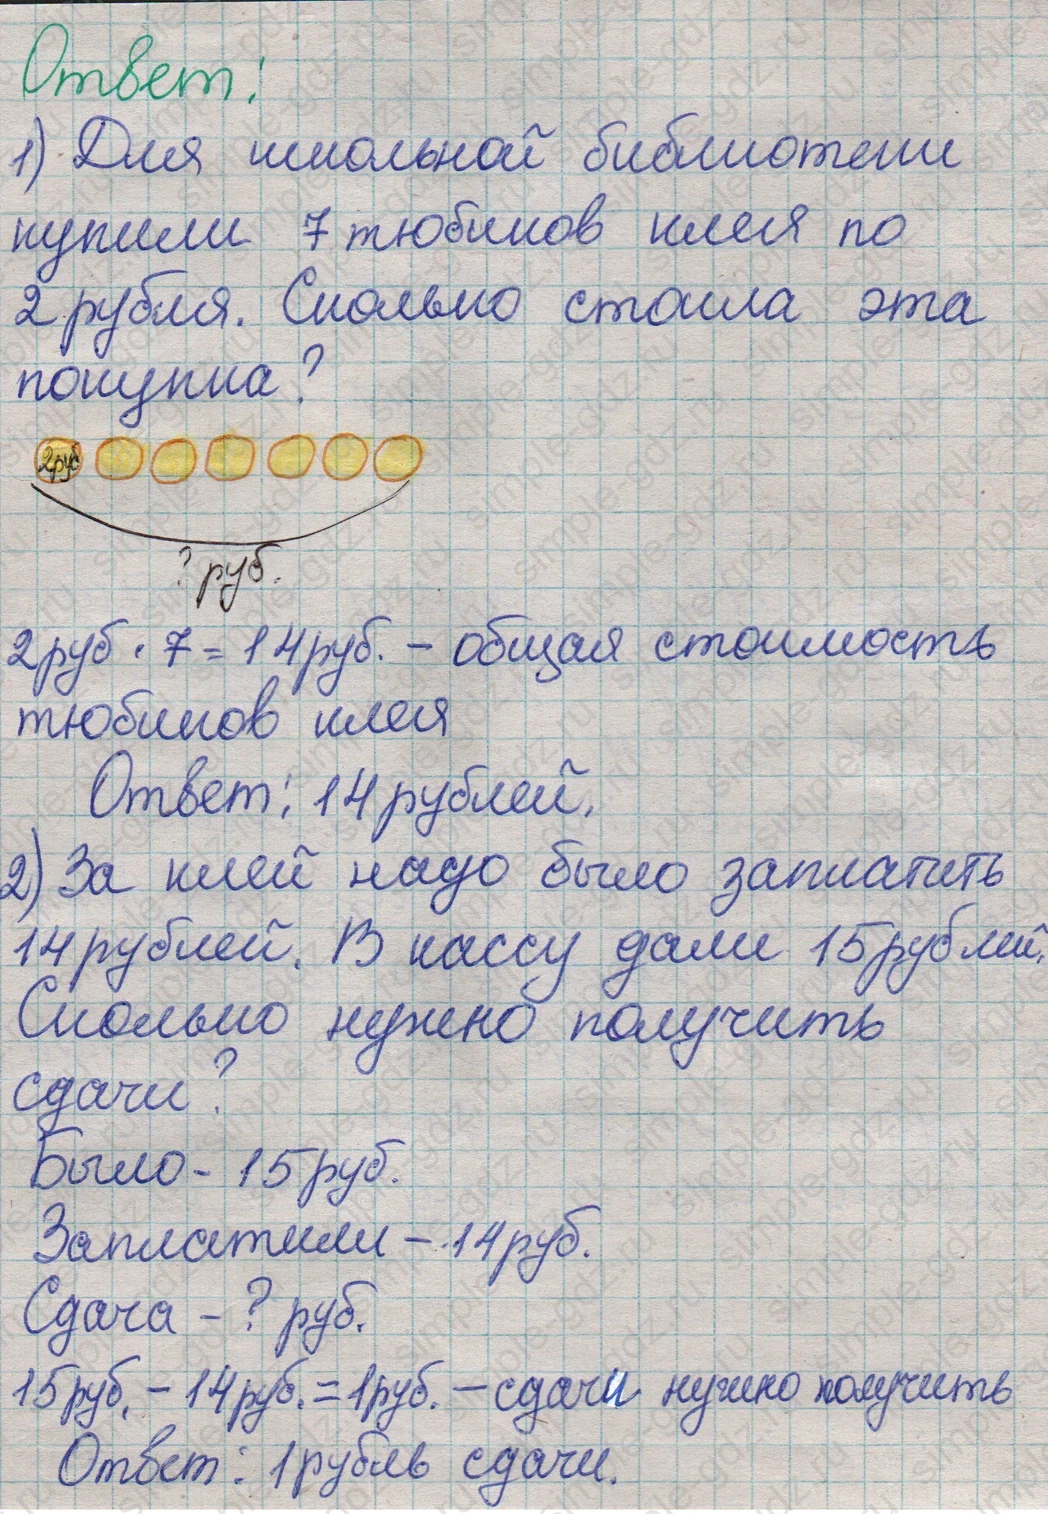 Ответ:
1) Для школьной библиотеки
купили 7 тюбиков клея по
2 рубля. Сколько стоила эта
покупка?
2руб
? руб.
2руб · 7 = 14руб. – общая стоимость
тюбиков клея
Ответ: 14 рублей.
2) За клей надо было заплатить
14 рублей. В кассу дали 15 рублей.
Сколько нужно получить
сдачи?
Было - 15 руб.
Заплатили – 14 руб.
Сдача – ? руб.
15руб. – 14руб. = 1руб. – сдачи нужно получить
Ответ: 1 рубль сдачи.
simple-gdz.ru